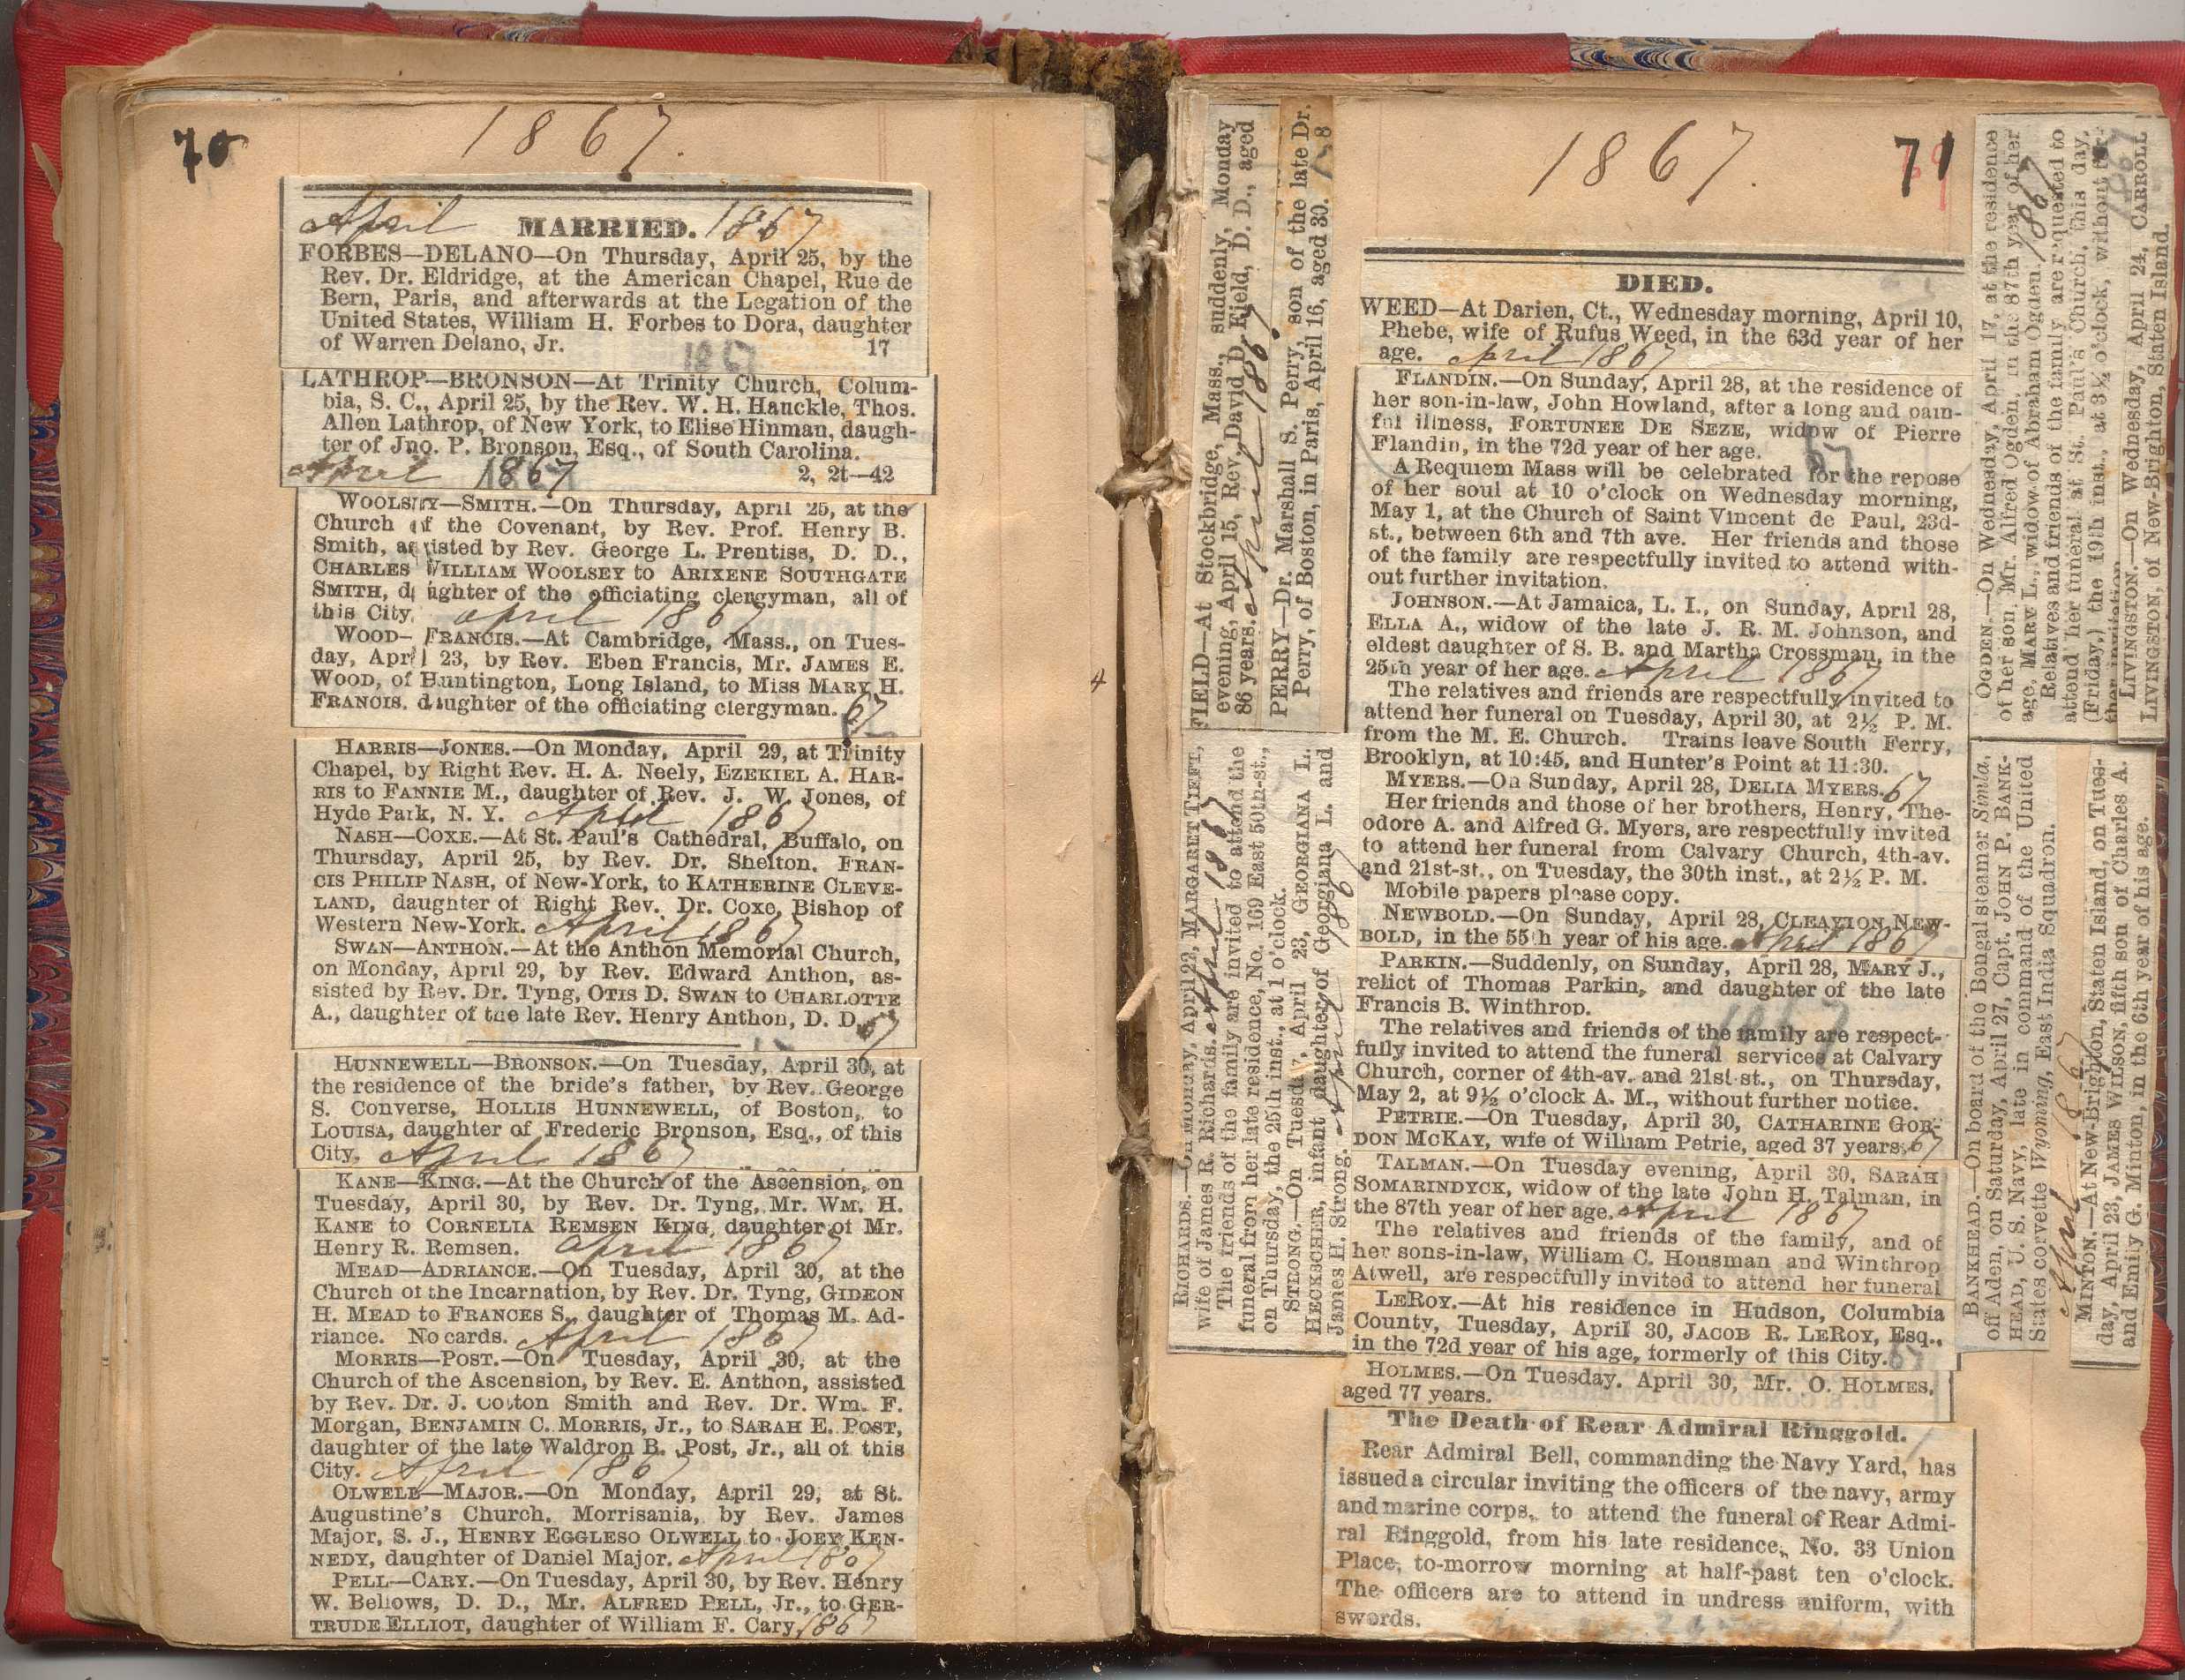 70
1867.
April MARRIED. 1867
FORBES—DELANO—On Thursday, April 25, by the
Rev. Dr. Eldridge, at the American Chapel, Rue de
Bern, Paris, and afterwards at the Legation of the
United States, William H. Forbes to Dora, daughter
of Warren Delano, Jr. 17
1867
LATHROP—BRONSON—At Trinity Church, Colum-
bia, S. C., April 25, by the Rev. W. H. Hauckle, Thos.
Allen Lathrop, of New York, to Elise Hinman, daugh-
ter of Jno. P. Bronson, Esq., of South Carolina.
April 1867 2, 2t—42
WOOLSEY—SMITH.—On Thursday, April 25, at the
Church of the Covenant, by Rev. Prof. Henry B.
Smith, assisted by Rev. George L. Prentiss, D. D.,
CHARLES WILLIAM WOOLSEY to ARIXENE SOUTHGATE
SMITH, daughter of the officiating clergyman, all of
this City. april 1867
WOOD—FRANCIS.—At Cambridge, Mass., on Tues-
day, April 23, by Rev. Eben Francis, Mr. JAMES E.
WOOD, of Huntington, Long Island, to Miss MARY H.
FRANCIS, daughter of the officiating clergyman. 67
HARRIS—JONES.—On Monday, April 29, at Trinity
Chapel, by Right Rev. H. A. Neely, EZEKIEL A. HAR-
RIS to FANNIE M., daughter of Rev. J. W. Jones, of
Hyde Park, N. Y. April 1867
NASH—COXE.—At St. Paul's Cathedral, Buffalo, on
Thursday, April 25, by Rev. Dr. Shelton, FRAN-
CIS PHILIP NASH, of New-York, to KATHERINE CLEVE-
LAND, daughter of Right Rev. Dr. Coxe, Bishop of
Western New-York. April 1867
SWAN—ANTHON.—At the Anthon Memorial Church,
on Monday, April 29, by Rev. Edward Anthon, as-
sisted by Rev. Dr. Tyng, OTIS D. SWAN to CHARLOTTE
A., daughter of the late Rev. Henry Anthon, D. D. 67
HUNNEWELL—BRONSON.—On Tuesday, April 30, at
the residence of the bride's father, by Rev. George
S. Converse, HOLLIS HUNNEWELL, of Boston, to
LOUISA, daughter of Frederic Bronson, Esq., of this
City. April 1867
KANE—KING.—At the Church of the Ascension, on
Tuesday, April 30, by Rev. Dr. Tyng, Mr. WM. H.
KANE to CORNELIA REMSEN KING, daughter of Mr.
Henry R. Remsen. april 1867
MEAD—ADRIANCE.—On Tuesday, April 30, at the
Church of the Incarnation, by Rev. Dr. Tyng, GIDEON
H. MEAD to FRANCES S., daughter of Thomas M. Ad-
riance. No cards. April 1867
MORRIS—POST.—On Tuesday, April 30, at the
Church of the Ascension, by Rev. E. Anthon, assisted
by Rev. Dr. J. Cotton Smith and Rev. Dr. Wm. F.
Morgan, BENJAMIN C. MORRIS, Jr., to SARAH E. POST,
daughter of the late Waldron B. Post, Jr., all of this
City. April 1867
OLWELL—MAJOR.—On Monday, April 29, at St.
Augustine's Church, Morrisania, by Rev. James
Major, S. J., HENRY EGGLESO OLWELL to JOEY KEN-
NEDY, daughter of Daniel Major. April 1867
PELL—CARY.—On Tuesday, April 30, by Rev. Henry
W. Bellows, D. D., Mr. ALFRED PELL, Jr., to GER-
TRUDE ELLIOT, daughter of William F. Cary. 1867
FIELD—At Stockbridge, Mass., suddenly, Monday
evening, April 15, Rev. David D. Field, D. D., aged
86 years. April 1867
PERRY—Dr. Marshall S. Perry, son of the late Dr.
Perry, of Boston, in Paris, April 16, aged 30.
RICHARDS.—On Monday, April 22, MARGARET TIFFT,
wife of James R. Richards. April 1867
The friends of the family are invited to attend the
funeral from her late residence, No. 169 East 50th-st.,
on Thursday, the 25th inst., at 1 o'clock.
STRONG.—On Tuesday, April 23, GEORGIANA L.
HECKSCHER, infant daughter of Georgiana L. and
James H. Strong. april 1867
1867.
71
DIED.
WEED—At Darien, Ct., Wednesday morning, April 10,
Phebe, wife of Rufus Weed, in the 63d year of her
age. April 1867
FLANDIN.—On Sunday, April 28, at the residence of
her son-in-law, John Howland, after a long and pain-
ful illness, FORTUNEE DE SEZE, widow of Pierre
Flandin, in the 72d year of her age. 67
A Requiem Mass will be celebrated for the repose
of her soul at 10 o'clock on Wednesday morning,
May 1, at the Church of Saint Vincent de Paul, 23d-
st., between 6th and 7th ave. Her friends and those
of the family are respectfully invited to attend with-
out further invitation.
JOHNSON.—At Jamaica, L. I., on Sunday, April 28,
ELLA A., widow of the late J. R. M. Johnson, and
eldest daughter of S. B. and Martha Crossman, in the
25th year of her age. April 1867
The relatives and friends are respectfully invited to
attend her funeral on Tuesday, April 30, at 2½ P. M.
from the M. E. Church. Trains leave South Ferry,
Brooklyn, at 10:45, and Hunter's Point at 11:30.
MYERS.—On Sunday, April 28, DELIA MYERS. 67
Her friends and those of her brothers, Henry, The-
odore A. and Alfred G. Myers, are respectfully invited
to attend her funeral from Calvary Church, 4th-av.
and 21st-st., on Tuesday, the 30th inst., at 2½ P. M.
Mobile papers please copy.
NEWBOLD.—On Sunday, April 28, CLEAYION NEW-
BOLD, in the 55th year of his age. April 1867
PARKIN.—Suddenly, on Sunday, April 28, MARY J.,
relict of Thomas Parkin, and daughter of the late
Francis B. Winthrop.
The relatives and friends of the family are respect-
fully invited to attend the funeral services at Calvary
Church, corner of 4th-av. and 21st-st., on Thursday,
May 2, at 9½ o'clock A. M., without further notice.
PETRIE.—On Tuesday, April 30, CATHARINE GOR-
DON MCKAY, wife of William Petrie, aged 37 years. 67
TALMAN.—On Tuesday evening, April 30, SARAH
SOMARINDYCK, widow of the late John H. Talman, in
the 87th year of her age. April 1867
The relatives and friends of the family, and of
her sons-in-law, William C. Housman and Winthrop
Atwell, are respectfully invited to attend her funeral
LEROY.—At his residence in Hudson, Columbia
County, Tuesday, April 30, JACOB R. LEROY, Esq.,
in the 72d year of his age, formerly of this City. 67
HOLMES.—On Tuesday, April 30, Mr. O. HOLMES,
aged 77 years.
The Death of Rear Admiral Ringgold.
Rear Admiral Bell, commanding the Navy Yard, has
issued a circular inviting the officers of the navy, army
and marine corps, to attend the funeral of Rear Admi-
ral Ringgold, from his late residence, No. 33 Union
Place, to-morrow morning at half-past ten o'clock.
The officers are to attend in undress uniform, with
swords.
OGDEN.—On Wednesday, April 17, at the residence
of her son, Mr. Alfred Ogden, in the 87th year of her
age, MARY L., widow of Abraham Ogden. 1867
Relatives and friends of the family are requested to
attend her funeral at St. Paul's Church, this day,
(Friday,) the 19th inst., at 3¼ o'clock, without fur-
ther invitation.
LIVINGSTON.—On Wednesday, April 24, CARROLL
LIVINGSTON, of New-Brighton, Staten Island.
BANKHEAD.—On board of the Bengal steamer Simla,
off Aden, on Saturday, April 27, Capt. JOHN P. BANK-
HEAD, U. S. Navy, late in command of the United
States corvette Wyoming, East India Squadron.
April 1867
MINTON.—At New-Brighton, Staten Island, on Tues-
day, April 23, JAMES WILSON, fifth son of Charles A.
and Emily G. Minton, in the 6th year of his age.